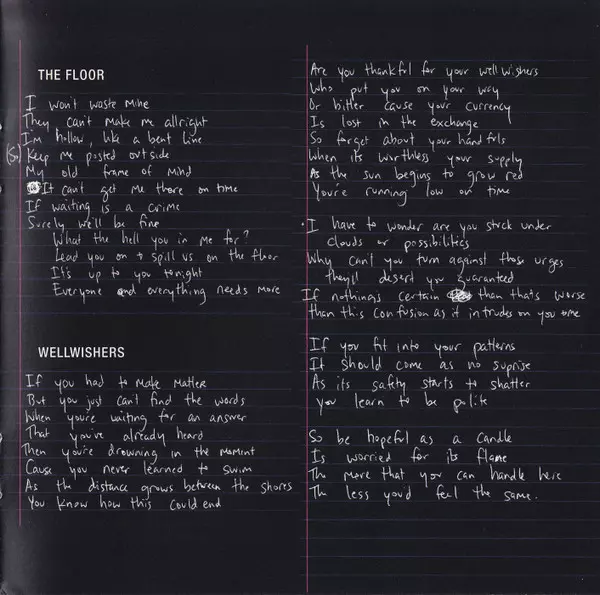 THE FLOOR
I won't waste mine
They can't make me allright
I'm hollow, like a beat line
(So) Keep me posted outside
My old frame of mind
It can't get me there on time
If waiting is a crime
Surely we'll be fine
What the hell you in me for?
Lead you on + spill us on the floor
It's up to you tonight
Everyone and everything needs more
WELLWISHERS
If you had to make matter
But you just can't find the words
When you're waiting for an answer
That you've already heard
Then you're drowning in the moment
Cause you never learned to swim
As th distance grows between the shores
You know how this could end
Are you thankful for your wellwishers
Who put you on your way
Or bitter cause your currency
Is lost in the exchange
So forget about your handfuls
When its worthless your supply
As the sun begins to grow red
You're running low on time
I have to wonder are you stuck under
clouds or possibilities
Why can't you turn against those urges
they'll desert you guaranteed
If nothings certain than thats worse
than this confusion as it intrudes on you
If you fit into your patterns
It should come as no suprise
As its safety starts to shatter
you learn to be polite
So be hopeful as a candle
Is worried for its flame
The more that you can handle here
The less you'd feel the same.